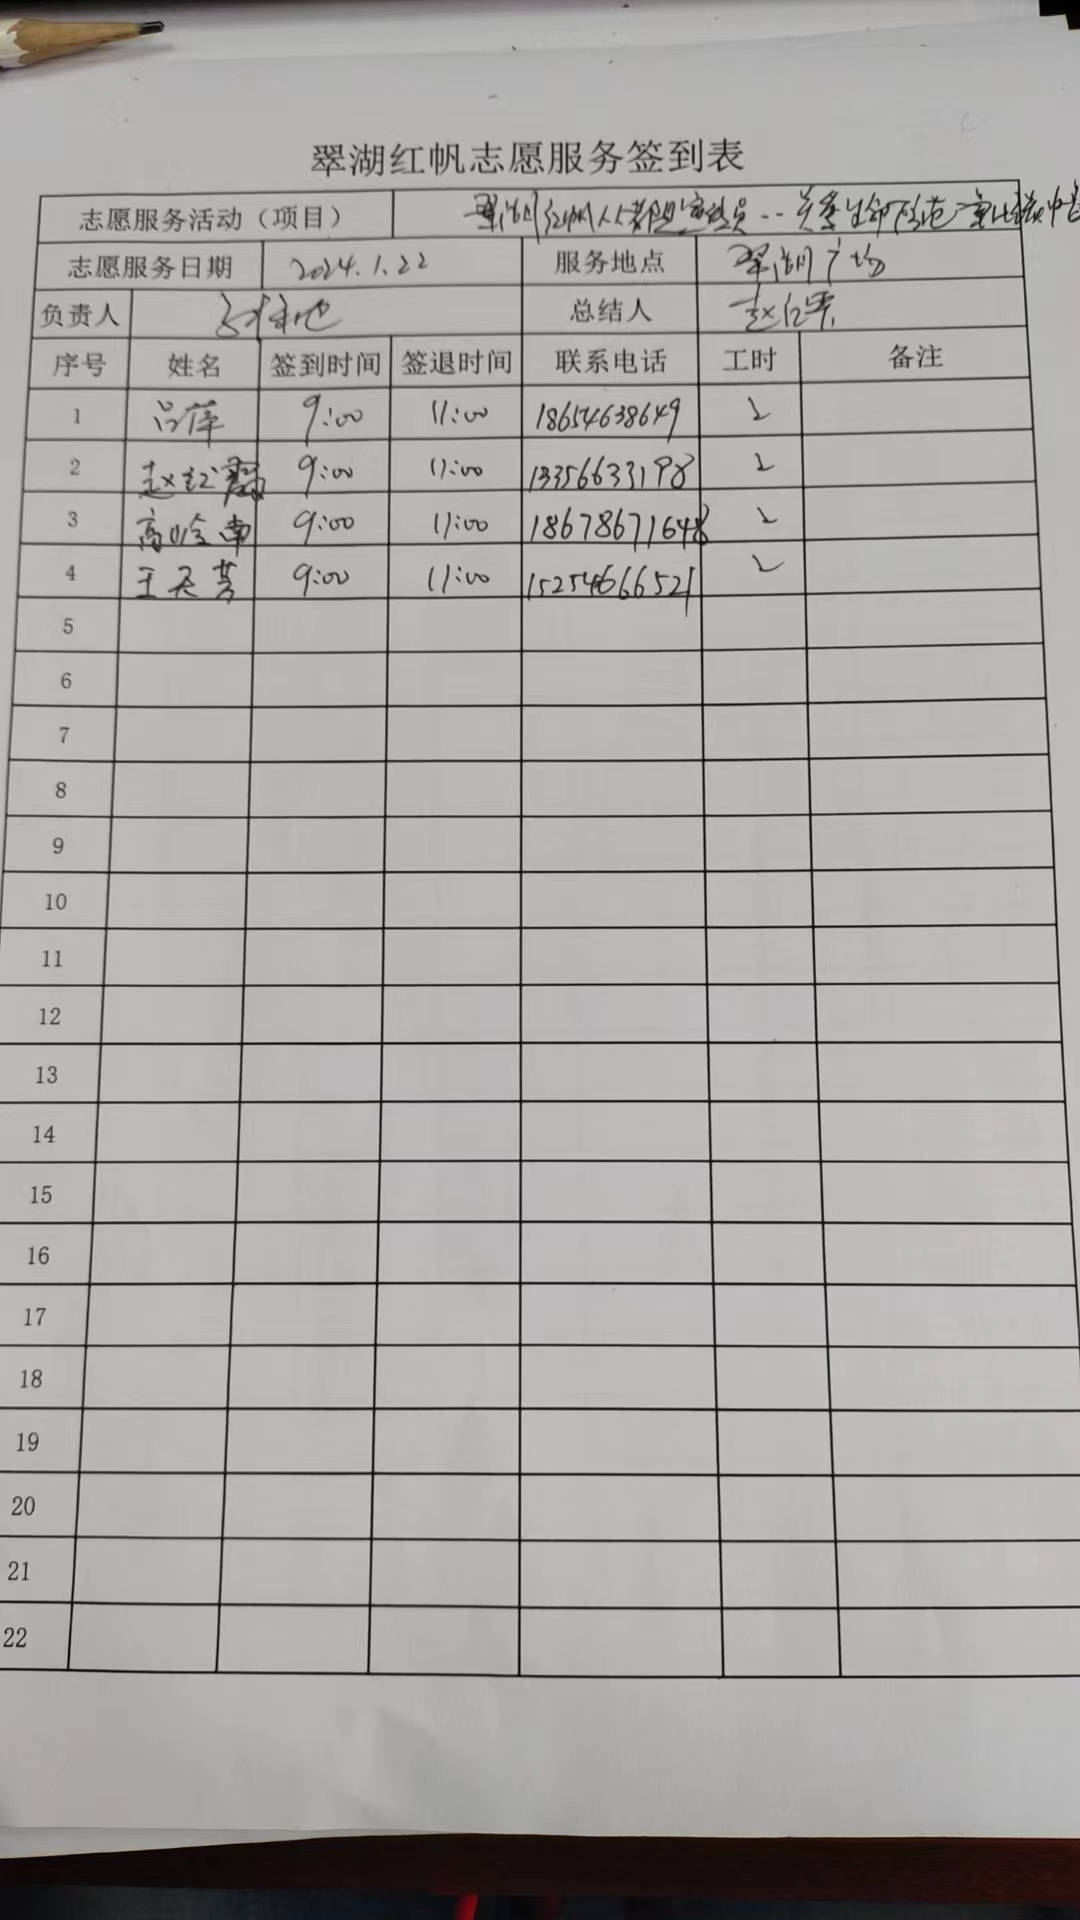 翠湖红帆志愿服务签到表
志愿服务活动（项目） 翠湖红帆人人都是宣传员--关爱生命 防范一氧化碳中毒
志愿服务日期 2024.1.22 服务地点 翠湖广场
负责人 总结人 赵红霞
序号 姓名 签到时间 签退时间 联系电话 工时 备注
1 吕萍 9:00 11:00 18654638649 2
2 赵红霞 9:00 11:00 13356633198 2
3 高岭南 9:00 11:00 18678671648 2
4 王天芳 9:00 11:00 15254666521 2
5
6
7
8
9
10
11
12
13
14
15
16
17
18
19
20
21
22